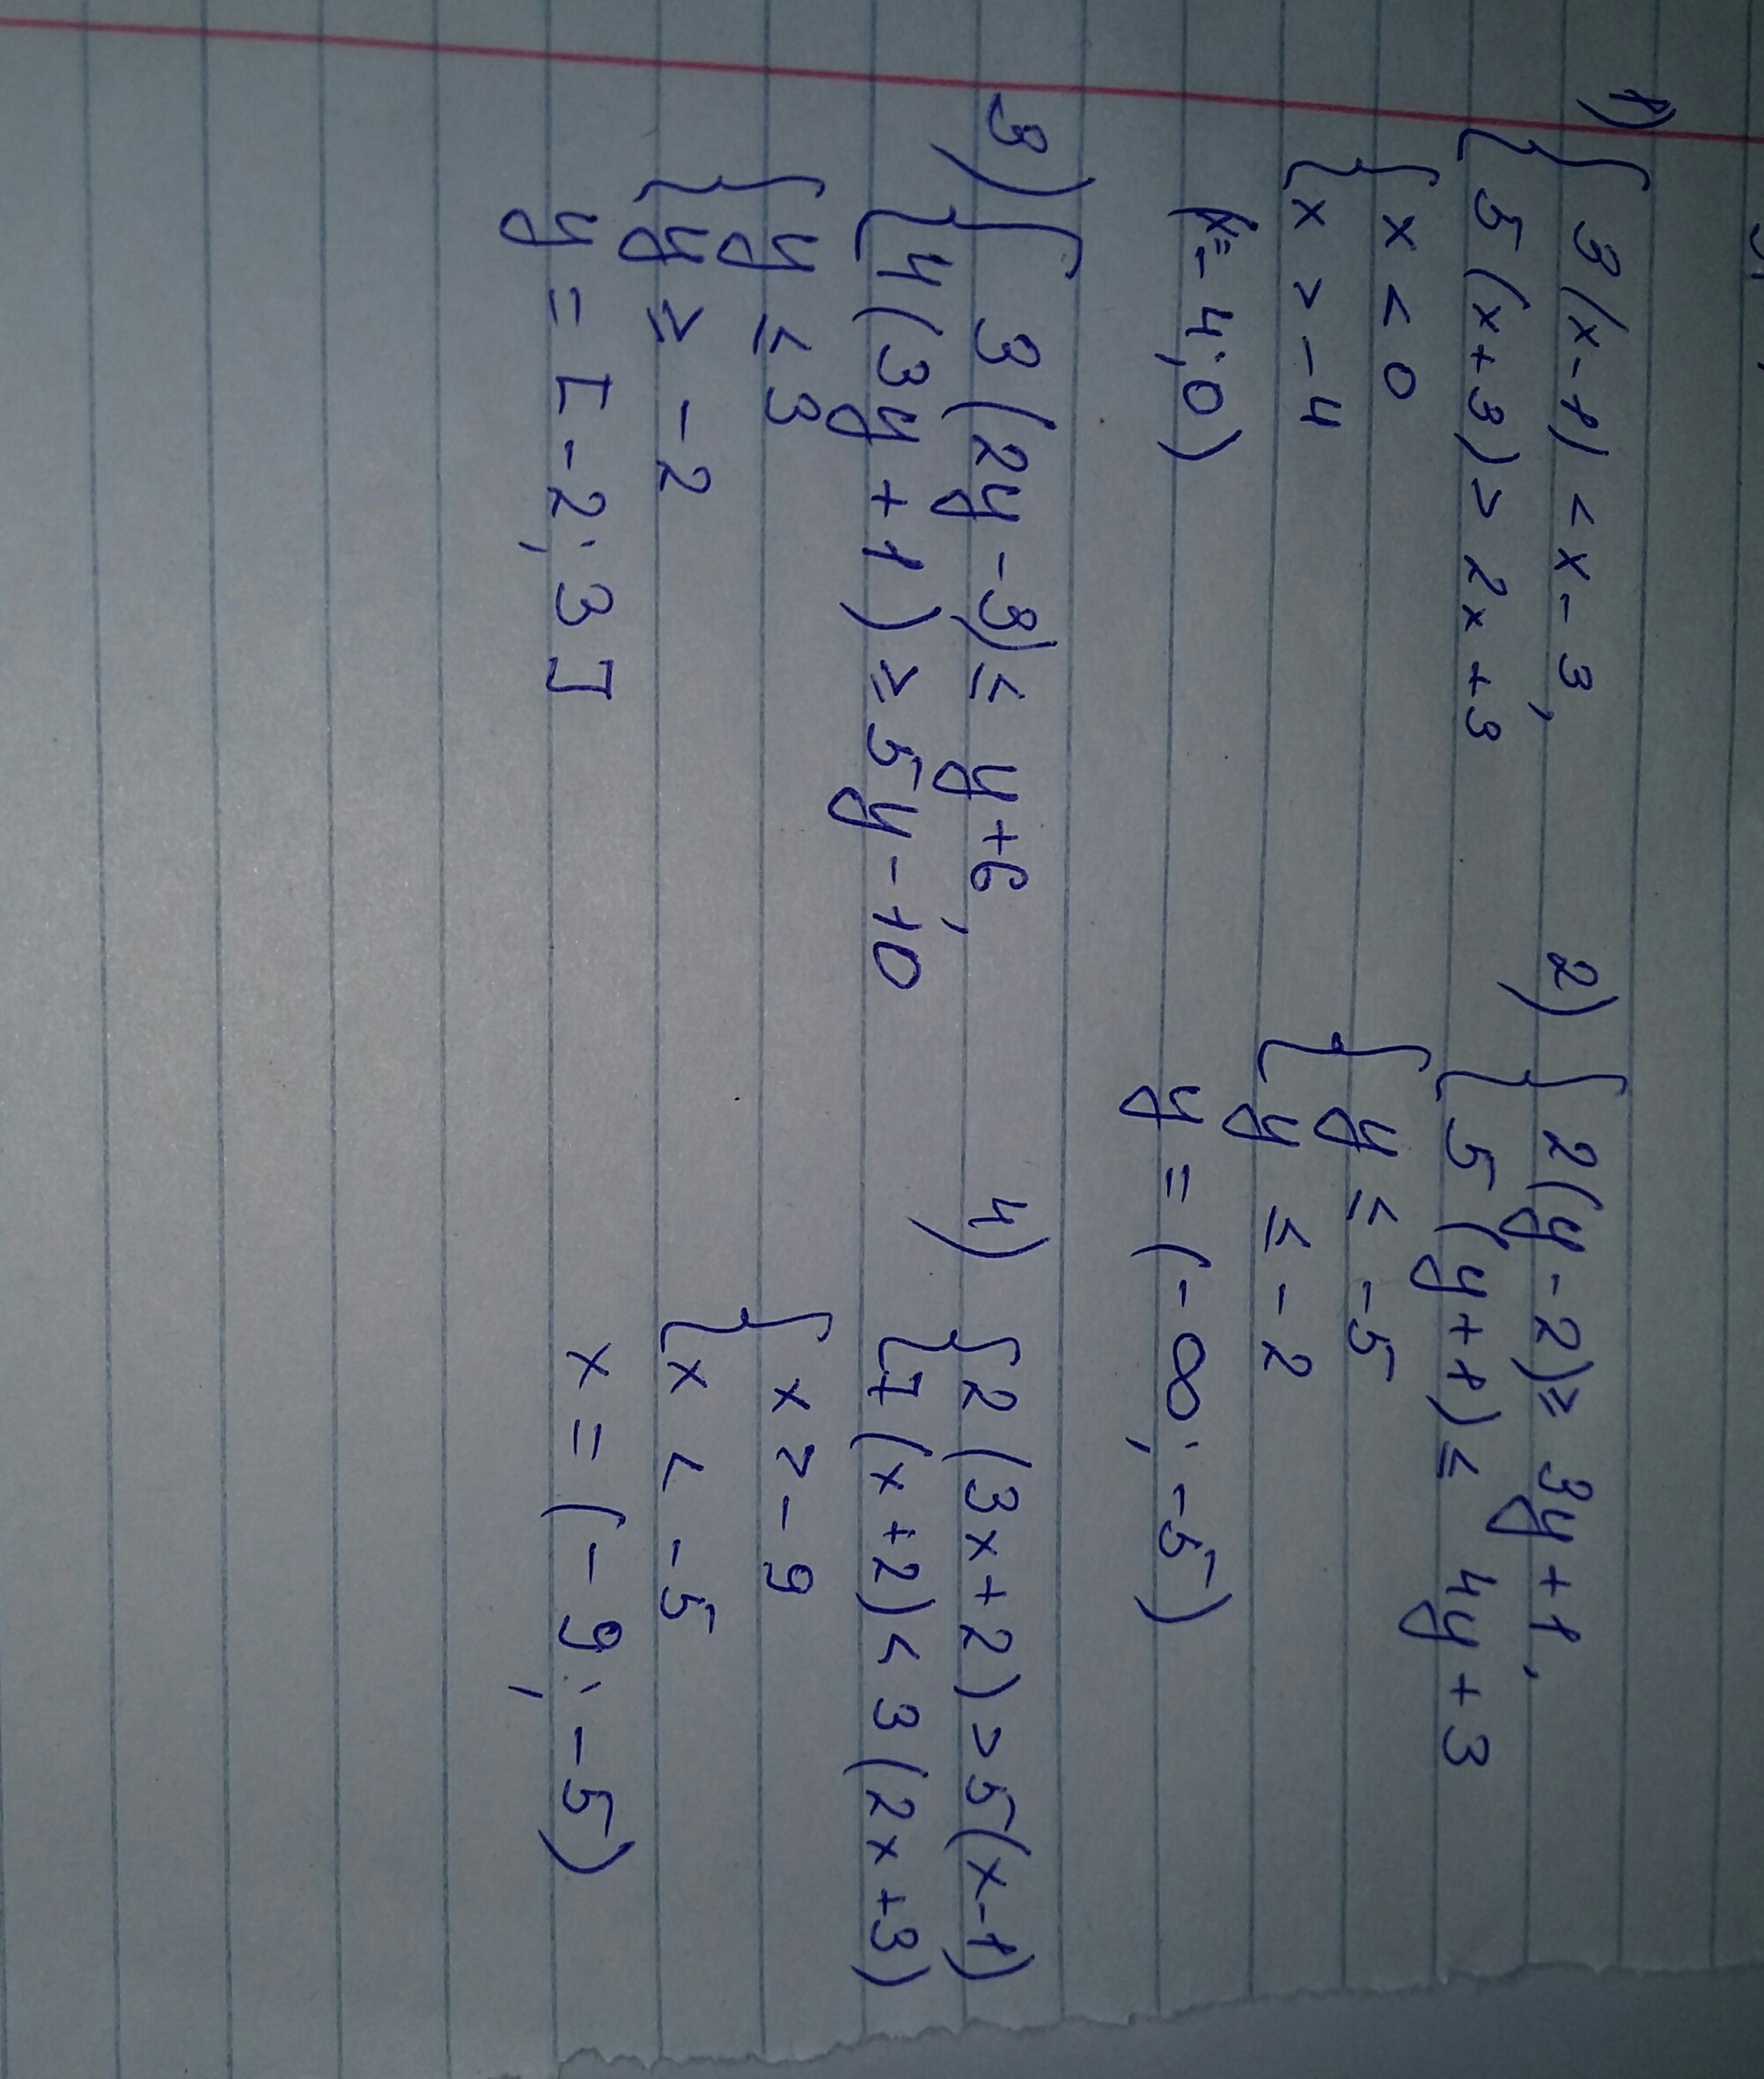 1) { 3(x-1) < x-3,
{ 5(x+3) > 2x+3
{ x < 0
{ x > -4
(x=-4;0)
2) { 2(y-2) ≥ 3y+1,
{ 5(y+1) ≤ 4y+3
{ y ≤ -5
{ y ≤ -2
y = (-∞; -5)
3) { 3(2y-3) ≤ y+6,
{ 4(3y+1) ≥ 5y-10
{ y ≤ 3
{ y ≥ -2
y = [-2; 3]
4) { 2(3x+2) > 5(x-1)
{ 7(x+2) < 3(2x+3)
{ x > -9
{ x < -5
x = (-9; -5)